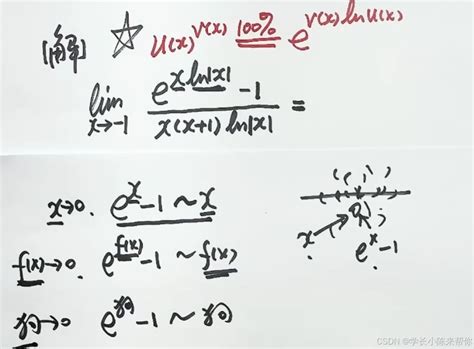 [解] ☆ u(x)^v(x) 100% e^v(x)lnu(x)
lim x→-1 (e^xln|x| -1)/(x(x+1)ln|x|) =
x→0. e^x-1~x
f(x)→0. e^f(x)-1~f(x)
狗→0 e^狗-1~狗
x
e^x-1
CSDN @学长小陈来帮你